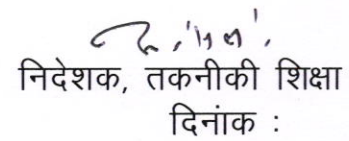 निदेशक, तकनीकी शिक्षा
दिनांक :